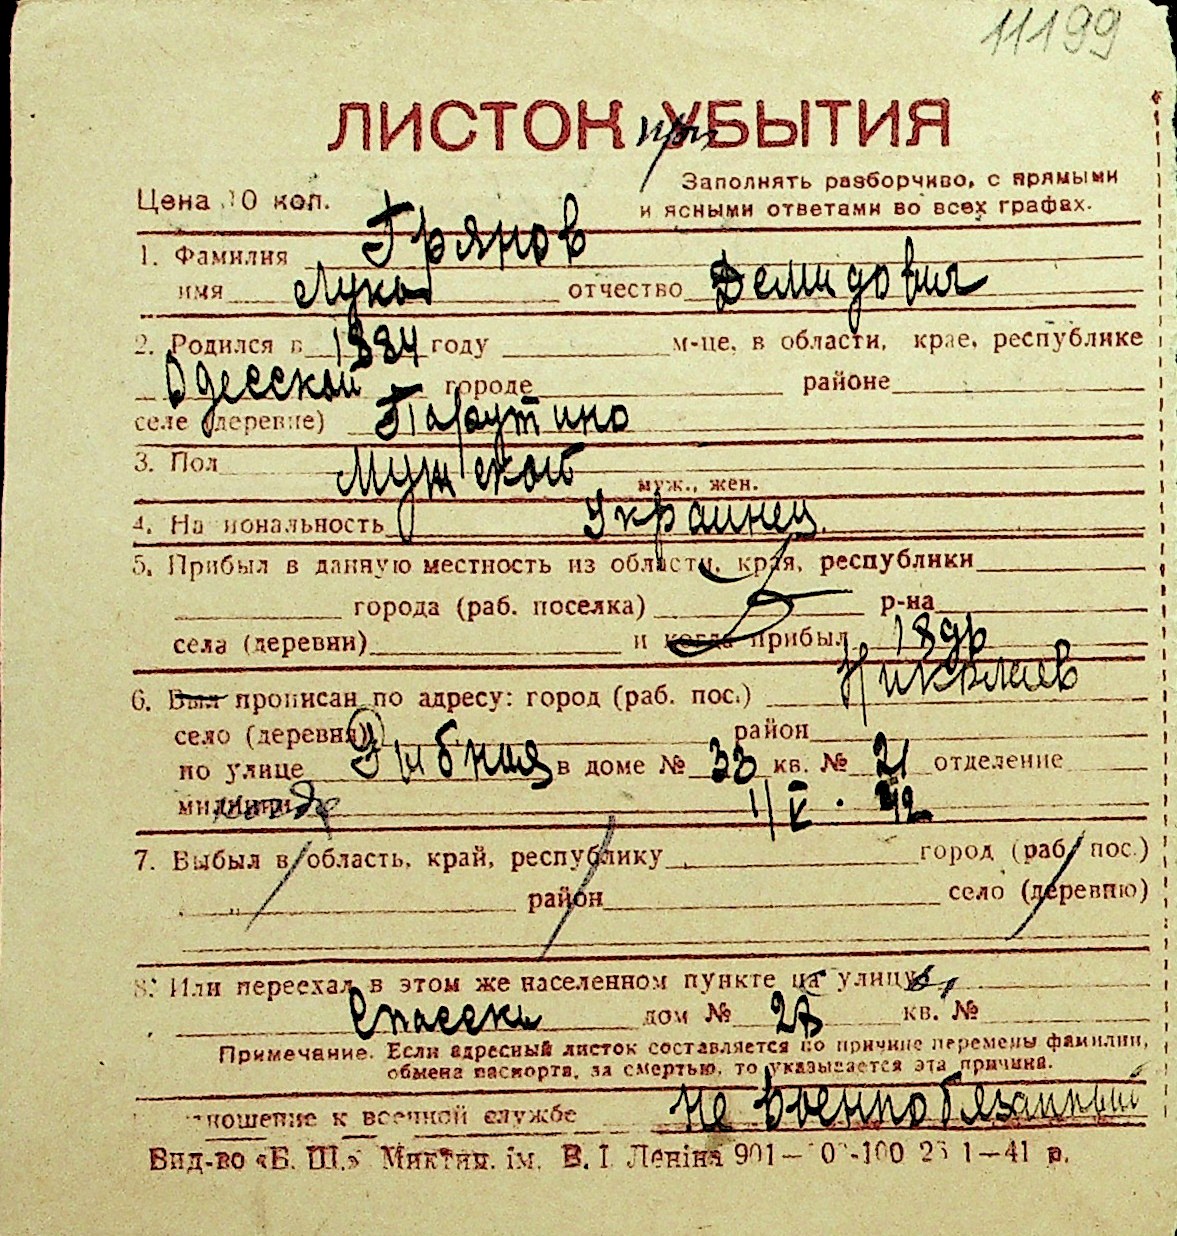 11199
ЛИСТОК при УБЫТИЯ
Цена 10 коп.
Заполнять разборчиво, с прямыми
и ясными ответами во всех графах.
1. Фамилия Грянов
имя Лука отчество Демидович
2. Родился в 1884 году м-це, в области, крае, республике
Одесской городе районе
селе (деревне) Тарутино
3. Пол Мужской
муж., жен.
4. Национальность Украинец.
5. Прибыл в данную местность из области, края, республики
города (раб. поселка) р-на
села (деревни) и когда прибыл
6. Был прописан по адресу: город (раб. пос.) Николаев
село (деревня) район
по улице в доме № 33 кв. № 21 отделение
милиции 11/V. 42
7. Выбыл в область, край, республику город (раб. пос.)
район село (деревню)
8. Или переехал в этом же населенном пункте на улицу
дом № кв. №
Примечание. Если адресный листок составляется по причине перемены фамилии,
обмена паспорта, за смертью, то указывается эта причина.
Отношение к военной службе не военнообязанный
Вид-во «Б. Ш.» Микткп. ім. В. І. Леніна 901—